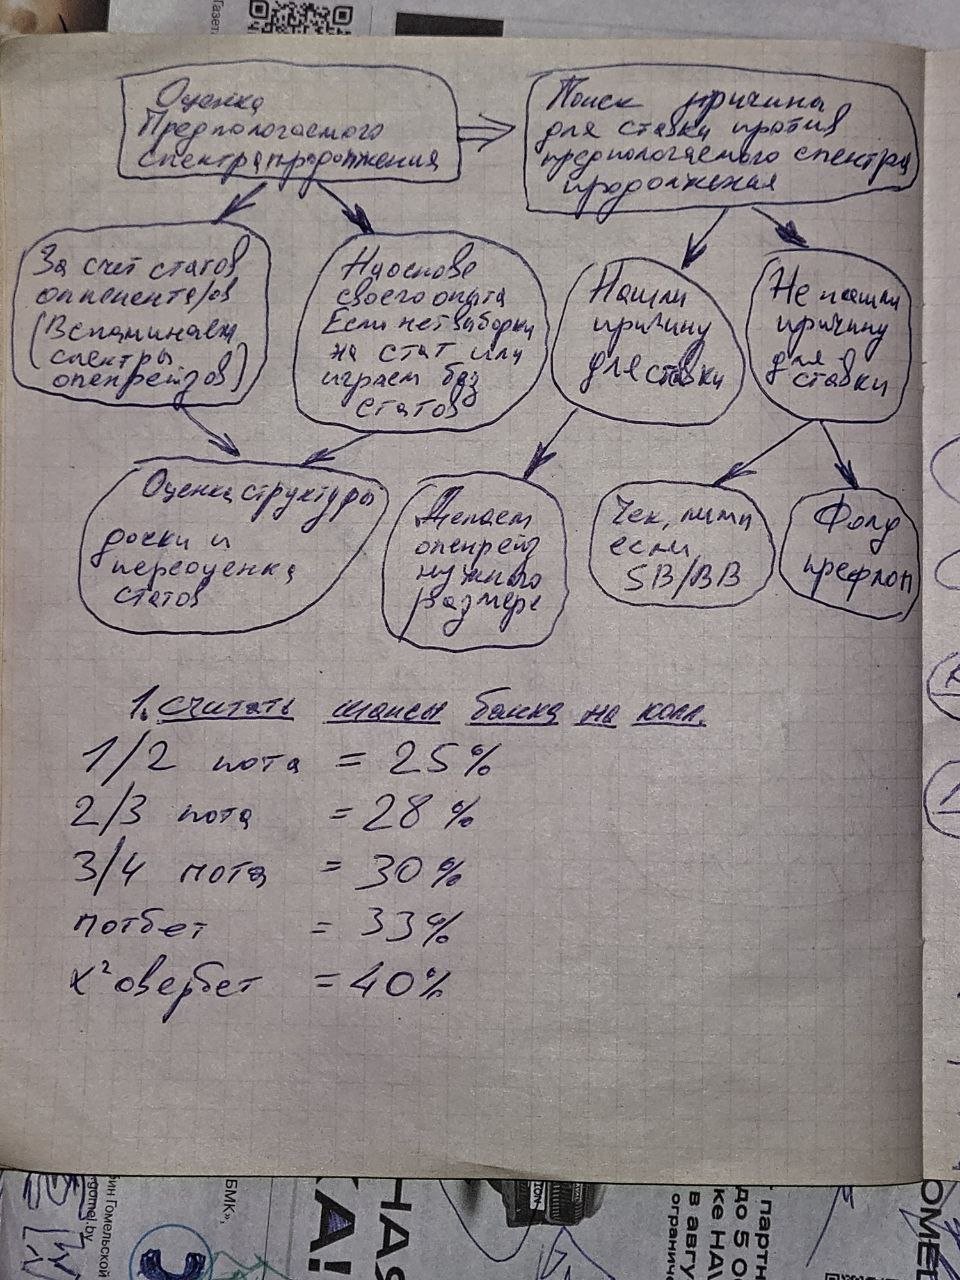 Газет
Оценка
Предпологаемого
спектра продолжения
Поиск причина
для ставки против
предпологаемого спектра
продолжения
За счет статов
оппенента/ов
(Вспаминаем
спектры
опенрейзов)
На основе
своего опыта
Если нет выборки
на стат или
играем без
статов
Нашли
причину
для ставки
Не нашли
причину
для
ставки
Оценка структуры
доски и
переоценка
статов
Делаем
опенрейз
нужного
размере
Чек, лимп
если
SB/BB
Фолд
префлоп
1. считать шансы банка на колл.
1/2 пота = 25%
2/3 пота = 28%
3/4 пота = 30%
потбет = 33%
x² овербет = 40%
рин Гомельской
gomel.by
БМК»,
КА!
НАЯ
партн
до 5 0
ке НА
в авгу
ограниче
OMEL